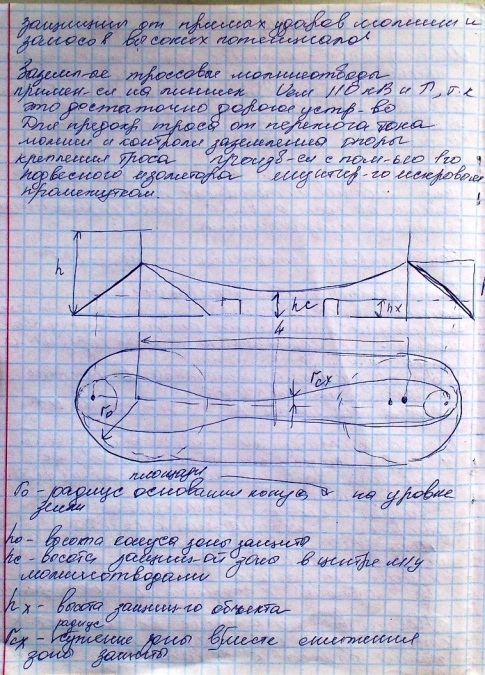 защищины от прямых ударов молнии и
заносов высоких потенциалов
Заземл-ые троссовые молниеотводы
примен-ся на линиях Uном 110 кВ и ↑, т.к
это достаточно дорогое устр-во
Для предохр. троса от пережога тока
молнии и контроля заземления опоры
крепления троса произв-ся с пом-ью 1го
подвесного изолятора шунтир-го искровым
промежутком.
h
hc
hx
h
L
rcx
ro
площади
ro - радиус основания конуса на уровне
земли
ho - высота конуса зоны защиты
hc - высота защищ-ой зоны в центре м/у
молниеотводами
hx - высота защищ-го объекта
радиус
rcx - сужение зоны вместе снижения
зоны защиты